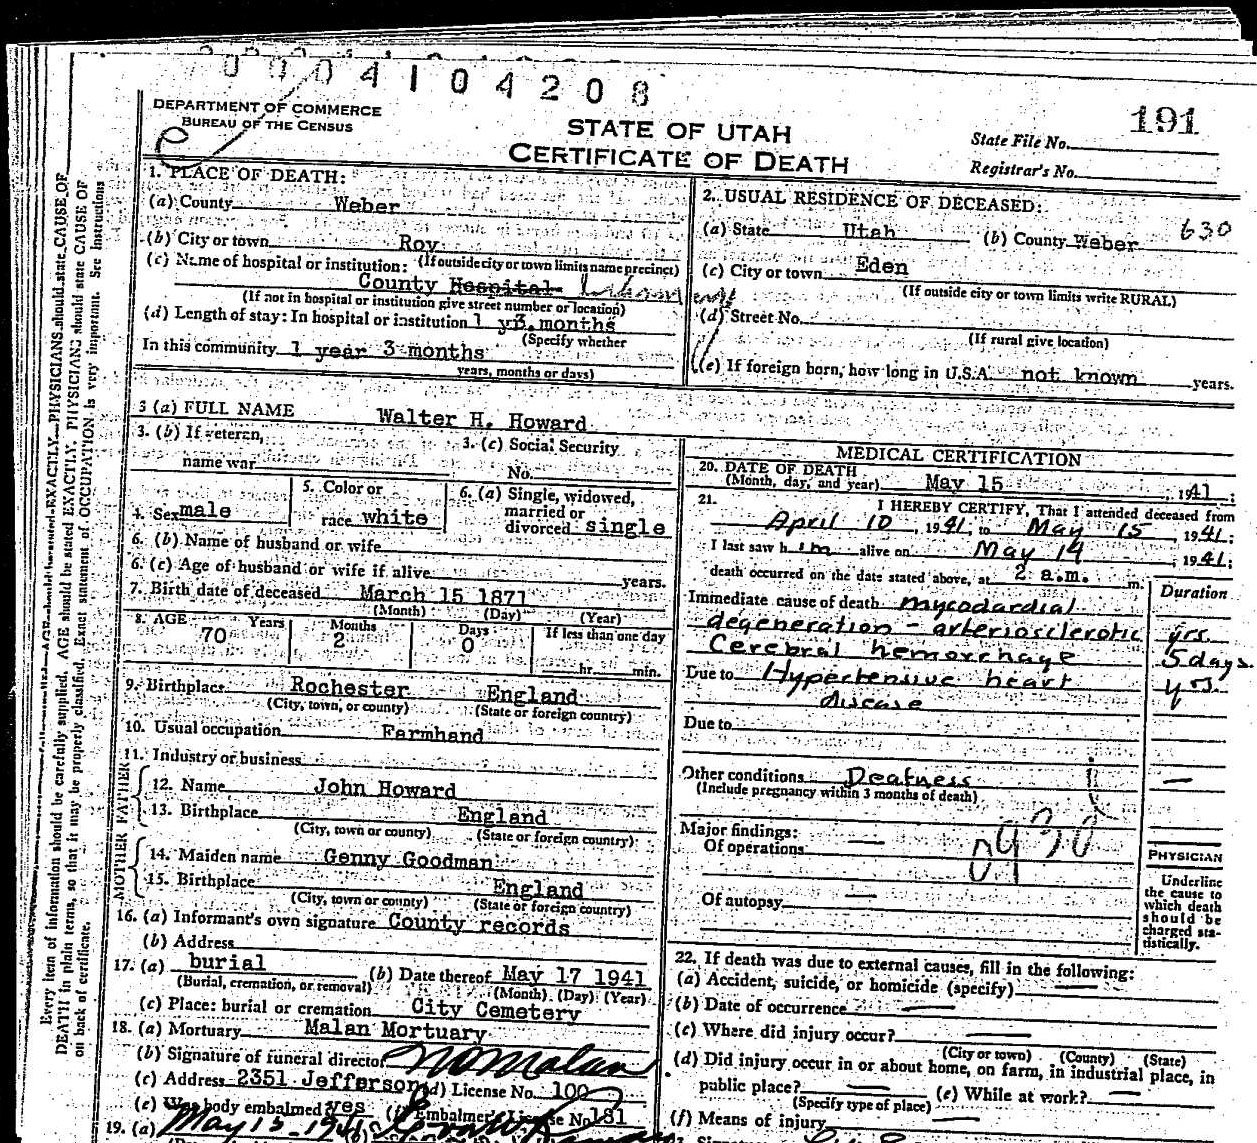 0004104208
DEPARTMENT OF COMMERCE
BUREAU OF THE CENSUS
STATE OF UTAH
CERTIFICATE OF DEATH
191
State File No.
Registrar's No.
1. PLACE OF DEATH:
(a) County Weber
(b) City or town Roy
(If outside city or town limits name precinct)
(c) Name of hospital or institution:
County Hospital
(If not in hospital or institution give street number or location)
(d) Length of stay: In hospital or institution 1 y 3 months
(Specify whether
In this community 1 year 3 months
years, months or days)
2. USUAL RESIDENCE OF DECEASED:
630
(a) State Utah (b) County Weber
(c) City or town Eden
(If outside city or town limits write RURAL)
(d) Street No.
(If rural give location)
(e) If foreign born, how long in U.S.A. not known years.
3 (a) FULL NAME Walter H. Howard
3. (b) If veteran,
name war
3. (c) Social Security
No.
4. Sex male
5. Color or
race white
6. (a) Single, widowed,
married or
divorced single
6. (b) Name of husband or wife
6. (c) Age of husband or wife if alive years.
7. Birth date of deceased March 15 1871
(Month) (Day) (Year)
8. AGE Years Months Days If less than one day
70 2 0
hr. min.
9. Birthplace Rochester England
(City, town, or county) (State or foreign country)
10. Usual occupation Farmhand
11. Industry or business
FATHER
12. Name John Howard
13. Birthplace England
(City, town or county) (State or foreign country)
MOTHER
14. Maiden name Genny Goodman
15. Birthplace England
(City, town or county) (State or foreign country)
16. (a) Informant's own signature County records
(b) Address
17. (a) burial (b) Date thereof May 17 1941
(Burial, cremation, or removal) (Month) (Day) (Year)
(c) Place: burial or cremation City Cemetery
18. (a) Mortuary Malan Mortuary
(b) Signature of funeral director N O Malan
(c) Address 2351 Jefferson (d) License No. 100
(e) Was body embalmed? yes (f) Embalmer's License No. 181
19. (a) May 15-1941
MEDICAL CERTIFICATION
20. DATE OF DEATH
(Month, day, and year) May 15, 1941;
21. I HEREBY CERTIFY, That I attended deceased from
April 10, 1941, to May 15, 1941;
I last saw him alive on May 14, 1941;
death occurred on the date stated above, at 2 a.m. m.
Duration
Immediate cause of death mycodardial
degeneration - arteriosclerotic yrs.
Cerebral hemorrhage 5 days.
Due to Hypertensive heart yrs.
disease
Due to
Other conditions Deafness —
(Include pregnancy within 3 months of death)
Major findings:
Of operations —
0930
Of autopsy —
PHYSICIAN
Underline
the cause to
which death
should be
charged sta-
tistically.
22. If death was due to external causes, fill in the following:
(a) Accident, suicide, or homicide (specify) —
(b) Date of occurrence —
(c) Where did injury occur? —
(City or town) (County) (State)
(d) Did injury occur in or about home, on farm, in industrial place, in
public place? — (e) While at work? —
(Specify type of place)
(f) Means of injury —
Every item of information should be carefully supplied. AGE should be stated EXACTLY. PHYSICIANS should state CAUSE OF
DEATH in plain terms, so that it may be properly classified. Exact statement of OCCUPATION is very important. See Instructions
on back of certificate.